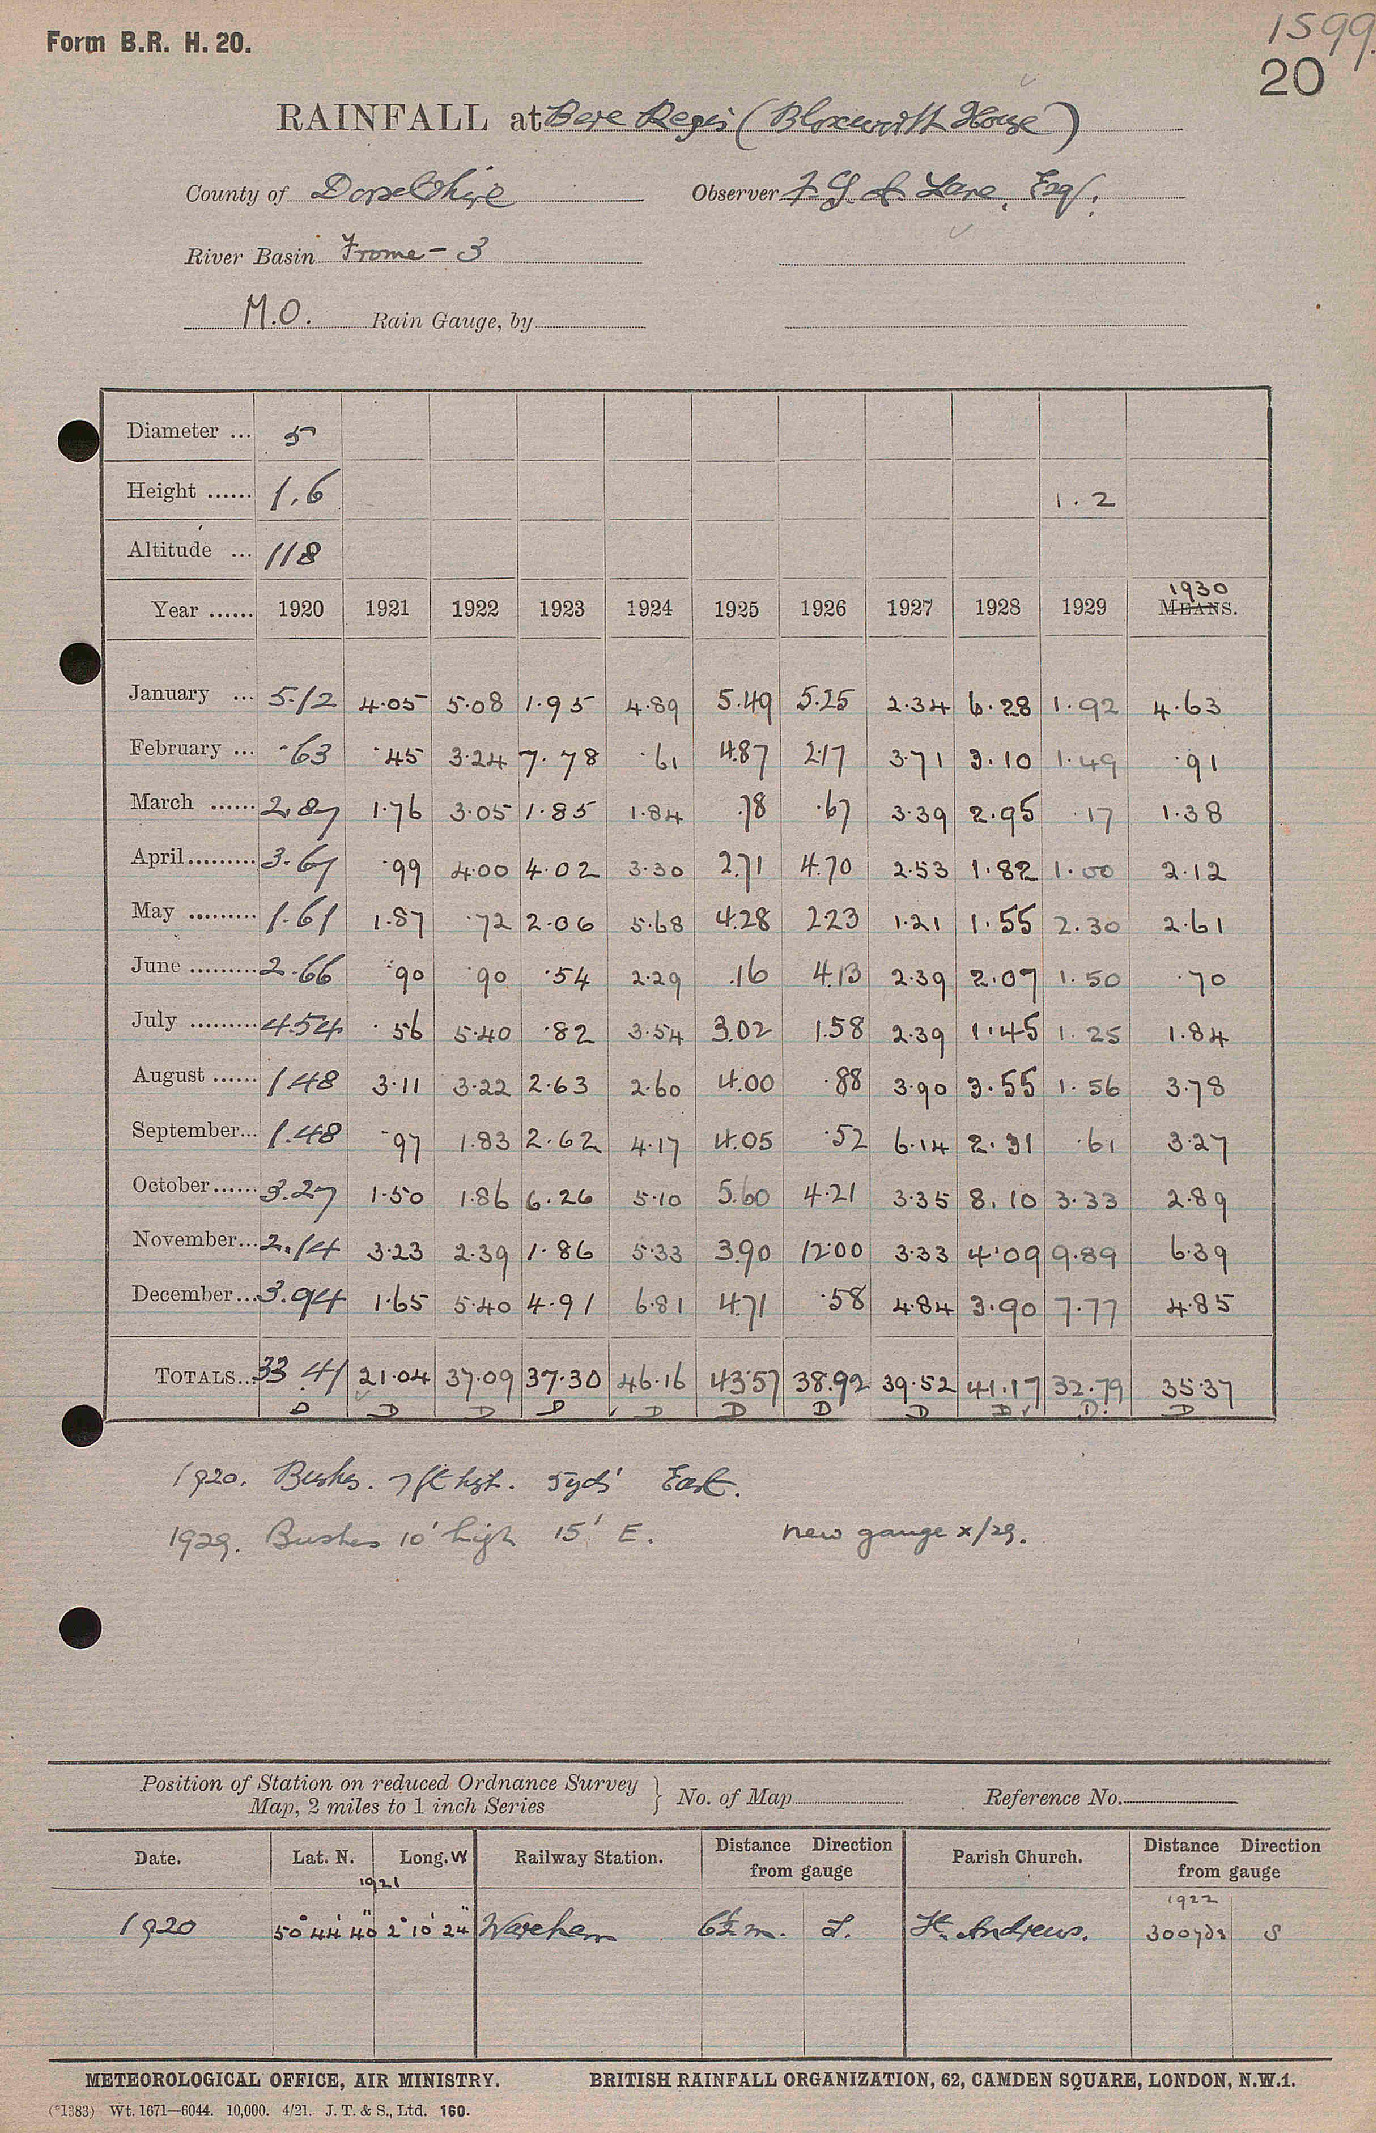 Form B.R. H. 20.
1599.
20
RAINFALL at Bere Regis (Bloxworth House)
County of Dorsetshire Observer Lane, Esq.
River Basin Frome - 3
M.O. Rain Gauge, by
Diameter ... 5
Height ...... 1.6 1.2
Altitude ... 118
1930
Year ...... 1920 1921 1922 1923 1924 1925 1926 1927 1928 1929 MEANS.
January ... 5.12 4.05 5.08 1.95 4.89 5.49 5.25 2.34 6.28 1.92 4.63
February ... .63 .45 3.24 7.78 .61 4.87 2.17 3.71 3.10 1.49 .91
March ...... 2.87 1.76 3.05 1.85 1.84 .78 .67 3.39 2.95 .17 1.38
April ......... 3.67 .99 4.00 4.02 3.30 2.71 4.70 2.53 1.82 1.00 2.12
May ......... 1.61 1.87 .72 2.06 5.68 4.28 2.23 1.21 1.55 2.30 2.61
June ......... 2.66 .90 .90 .54 2.29 .16 4.13 2.39 2.07 1.50 .70
July ......... 4.54 .56 5.40 .82 3.54 3.02 1.58 2.39 1.45 1.25 1.84
August ...... 1.48 3.11 3.22 2.63 2.60 4.00 .88 3.90 3.55 1.56 3.78
September... 1.48 .97 1.83 2.62 4.17 4.05 .52 6.14 2.31 .61 3.27
October...... 3.27 1.50 1.86 6.26 5.10 5.60 4.21 3.35 8.10 3.33 2.89
November... 2.14 3.23 2.39 1.86 5.33 3.90 12.00 3.33 4.09 9.89 6.39
December... 3.94 1.65 5.40 4.91 6.81 4.71 .58 4.84 3.90 7.77 4.85
TOTALS... 33.41 21.04 37.09 37.30 46.16 43.57 38.92 39.52 41.17 32.79 35.37
D D D D D D D D D D D
1920. Bushes. 7 ft hgt. 5 yds East.
1929. Bushes 10' high 15' E. new gauge x/29.
Position of Station on reduced Ordnance Survey } No. of Map Reference No.
Map, 2 miles to 1 inch Series
Date. Lat. N. Long. W Railway Station. Distance Direction from gauge Parish Church. Distance Direction from gauge
1921 1922
1920 50° 44' 40" 2° 10' 24" Wareham 6½ m. St. Andrews. 300 yds S
METEOROLOGICAL OFFICE, AIR MINISTRY. BRITISH RAINFALL ORGANIZATION, 62, CAMDEN SQUARE, LONDON, N.W.1.
(*1383) Wt. 1671—6044. 10,000. 4/21. J. T. & S., Ltd. 160.